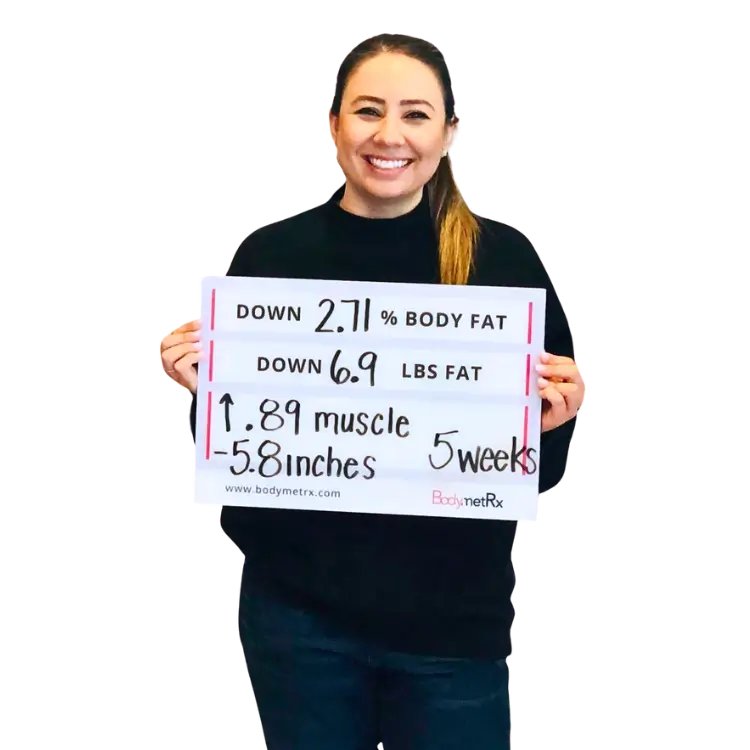 DOWN 2.71 % BODY FAT
DOWN 6.9 LBS FAT
↑ .89 muscle
-5.8 inches 5 weeks
www.bodymetrx.com BodymetRx